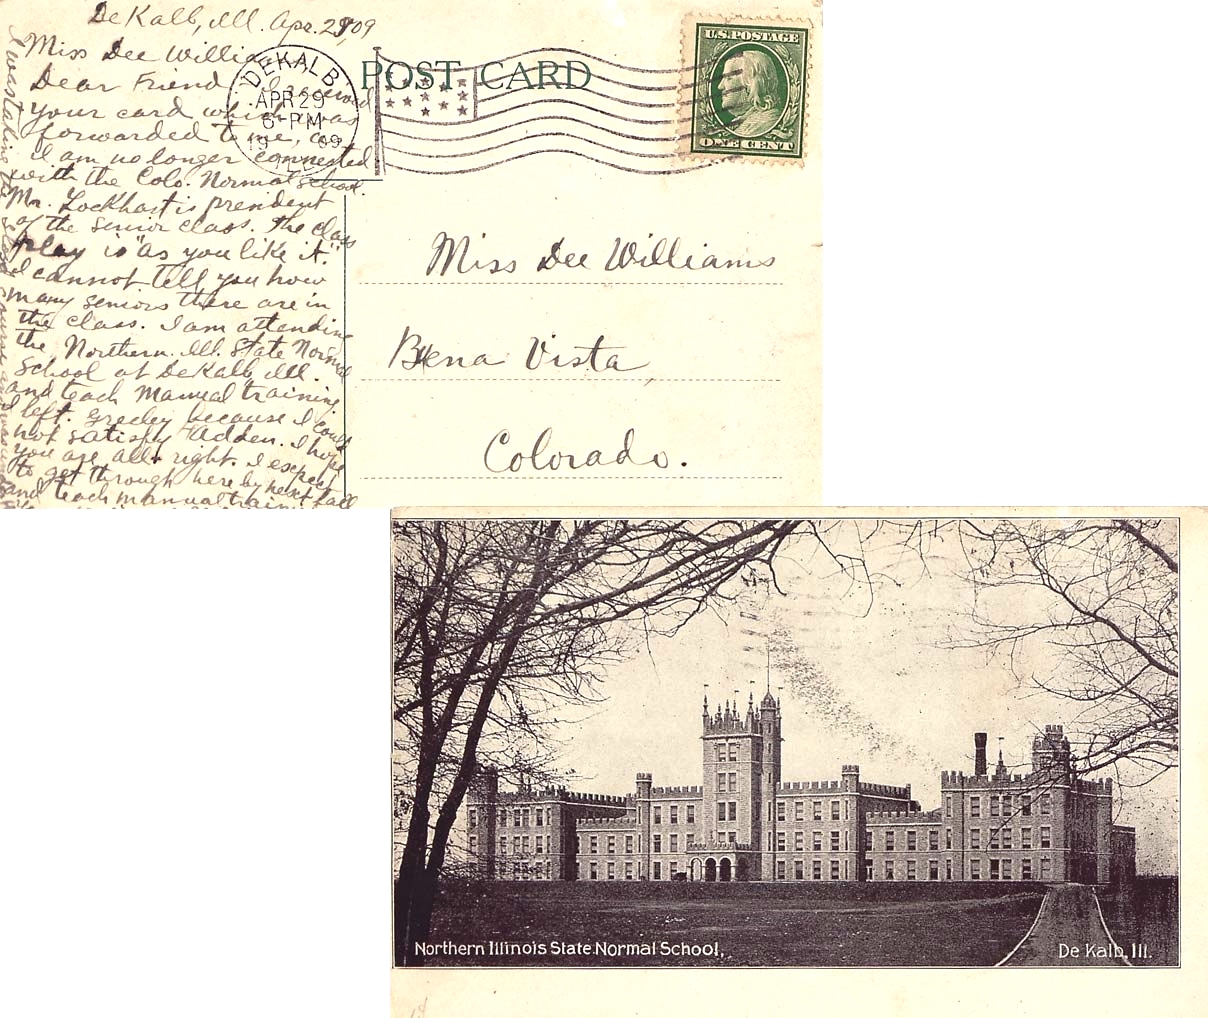 De Kalb, Ill. Apr. 29, 09
Miss Dee Williams
Dear Friend I received
your card which was
forwarded to me, as
I am no longer connected
with the Colo. Normal School.
Mr. Lockhart is president
of the senior class. The class
play is "as you like it."
I cannot tell you how
many seniors there are in
the class. I am attending
the Northern. Ill. State Normal
School at DeKalb, Ill.
and teach Manual training.
I left. Greeley because I could
not satisfy Hadden. I hope
you are all right. I expect
to get through here by next fall
and teach manual training
I was taking the
POST CARD
DEKALB
APR 29
6-PM
1909
ILL.
U.S. POSTAGE
ONE CENT
Miss Dee Williams
Buena Vista,
Colorado.
Northern Illinois State Normal School,
De Kalb, Ill.